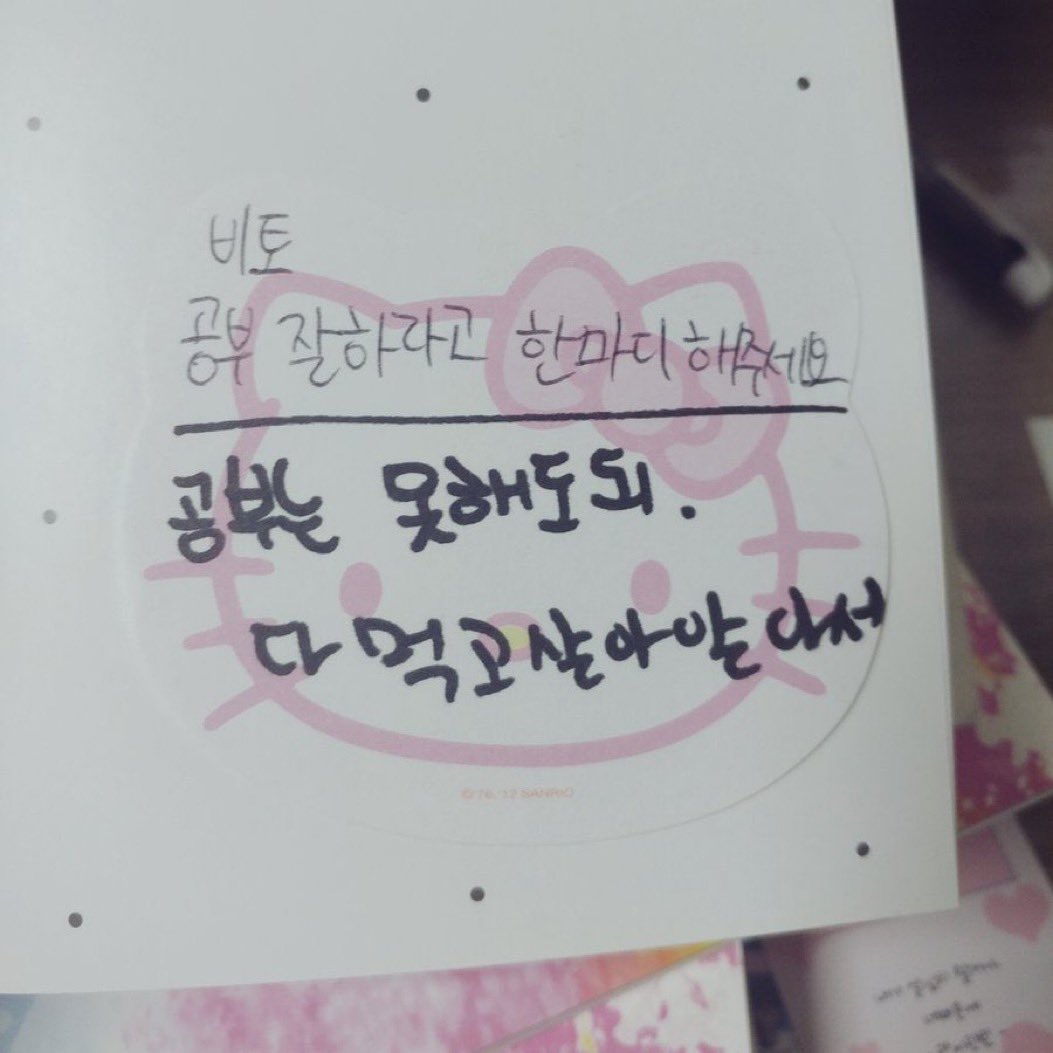 비토
공부 잘하라고 한마디 해주세요
공부는 못해도 되.
다 먹고 살아 알아서
©'76,'12 SANRIO